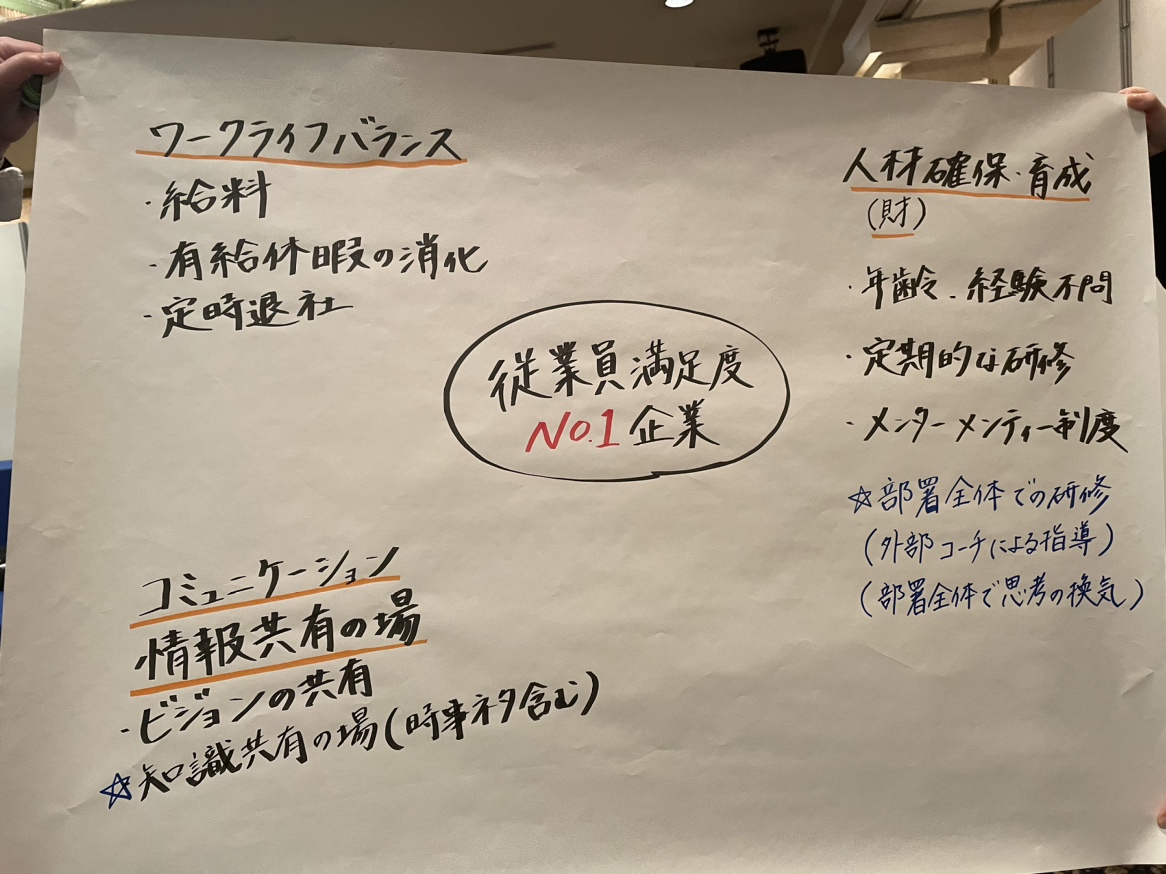 ワークライフバランス
・給料
・有給休暇の消化
・定時退社
従業員満足度
No.1企業
人材確保・育成
(財)
・年齢、経験不問
・定期的な研修
・メンターメンティー制度
☆部署全体での研修
(外部コーチによる指導)
(部署全体で思考の換気)
コミュニケーション
情報共有の場
・ビジョンの共有
☆知識共有の場(時事ネタ含む)